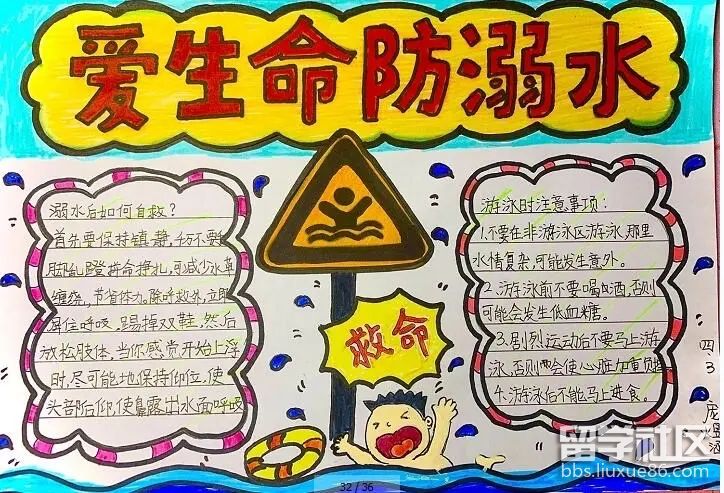 爱生命防溺水
溺水后如何自救?
首先要保持镇静,千万不要手
脚乱蹬拼命挣扎,可减少水草
缠绕,节省体力。除呼救外,立即
屏住呼吸,踢掉双鞋,然后
放松肢体,当你感觉开始上浮
时,尽可能地保持仰位,使
头部后仰,使鼻露出水面呼吸
救命
游泳时注意事项:
1.不要在非游泳区游泳,那里
水情复杂,可能发生意外。
2.游泳前不要喝酒,否则
可能会发生低血糖。
3.剧烈运动后不要马上游
泳,否则会使心脏加重负担
4.游泳后不能马上进食。
四3
32 / 36
留学社区
bbs.liuxue86.com